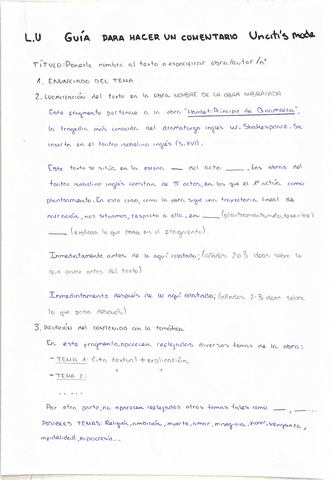 L.U GUÍA PARA HACER UN COMENTARIO Uncati's mode
TÍTULO: Ponerle nombre al texto o especificar obra/autor/nº
1. ENUNCIADO DEL TEMA
2. LOCALIZACIÓN del texto en la obra NOMBRE DE LA OBRA SUBRAYADA
Este fragmento pertenece a la obra "Hamlet: Príncipe de Dinamarca",
la tragedia más conocida del dramaturgo inglés W. Shakespeare. Se
inserta en el teatro isabelino inglés (S. XVI).
Este texto se sitúa en la escena __ del acto __. Las obras del
teatro isabelino inglés constan de 5 actos, en los que el 1º actúa como
planteamiento. En este caso, como la obra sigue una trayectoria lineal de
narración, nos situamos, respecto a ella, en ___ (planteamiento, nudo, desenlace)
___ (explicas lo que pasa en el fragmento).
Inmediatamente antes de lo aquí relatado; (añades 2 o 3 ideas sobre lo
que pasa antes del texto)
Inmediatamente después de lo aquí relatado; (añades 2-3 ideas sobre
lo que pasa después)
3. RELACIÓN del contenido con la temática
En este fragmento, aparecen reflejados diversos temas de la obra:
- TEMA 1: Cita textual + explicación
- TEMA 2: " + "
.....
Por otra parte, no aparecen reflejados otros temas tales como __, __...
POSIBLES TEMAS: Religión, ambición, muerte, amor, misoginia, honor, venganza,
infidelidad, hipocresía...